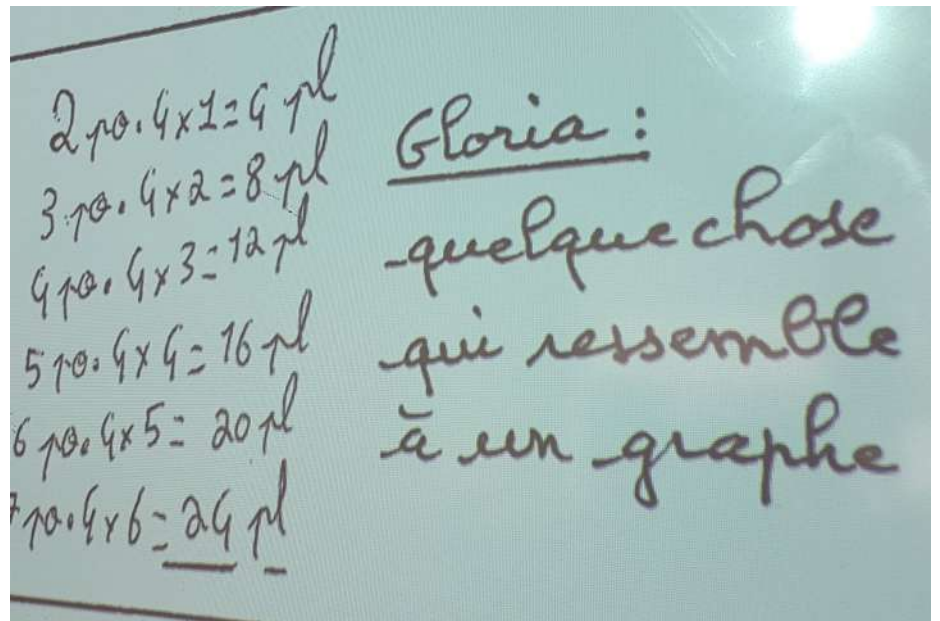 2 po. 4x1=4 pl
3 po. 4x2=8 pl
4 po. 4x3=12 pl
5 po. 4x4=16 pl
6 po. 4x5=20 pl
7 po. 4x6=24 pl
Gloria :
quelque chose
qui ressemble
à un graphe